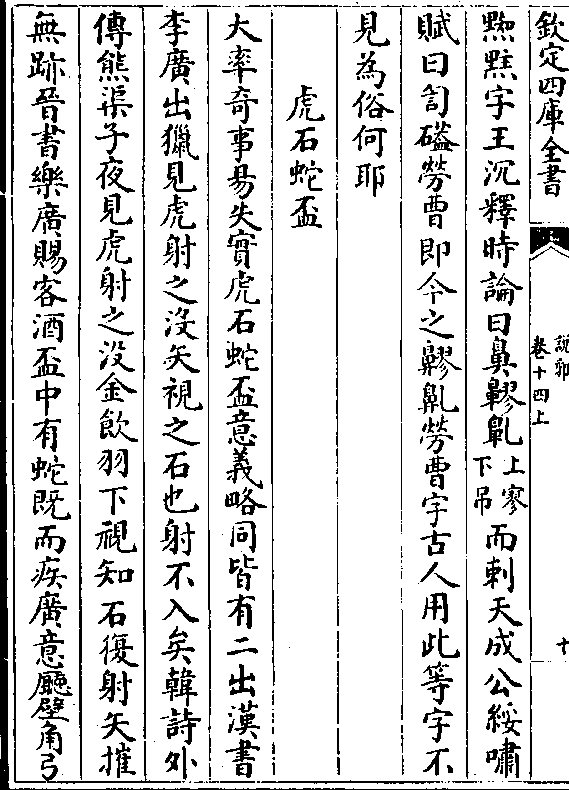 欽定四庫全書
說郛
卷十四上
十
黖黖字王沉釋時論曰鼻鼿上寥下吊而刺天成公綏嘯
賦曰訇磕勞曹即今之勞曹字古人用此等字不
見為俗何耶
虎石蛇盃
大率奇事易失實虎石蛇盃意義略同皆有二出漢書
李廣出獵見虎射之沒矢視之石也射不入矣韓詩外
傳熊渠子夜見虎射之没金飲羽下視知石復射矢摧
無跡晉書樂廣賜客酒盃中有蛇既而疾廣意廳壁角弓